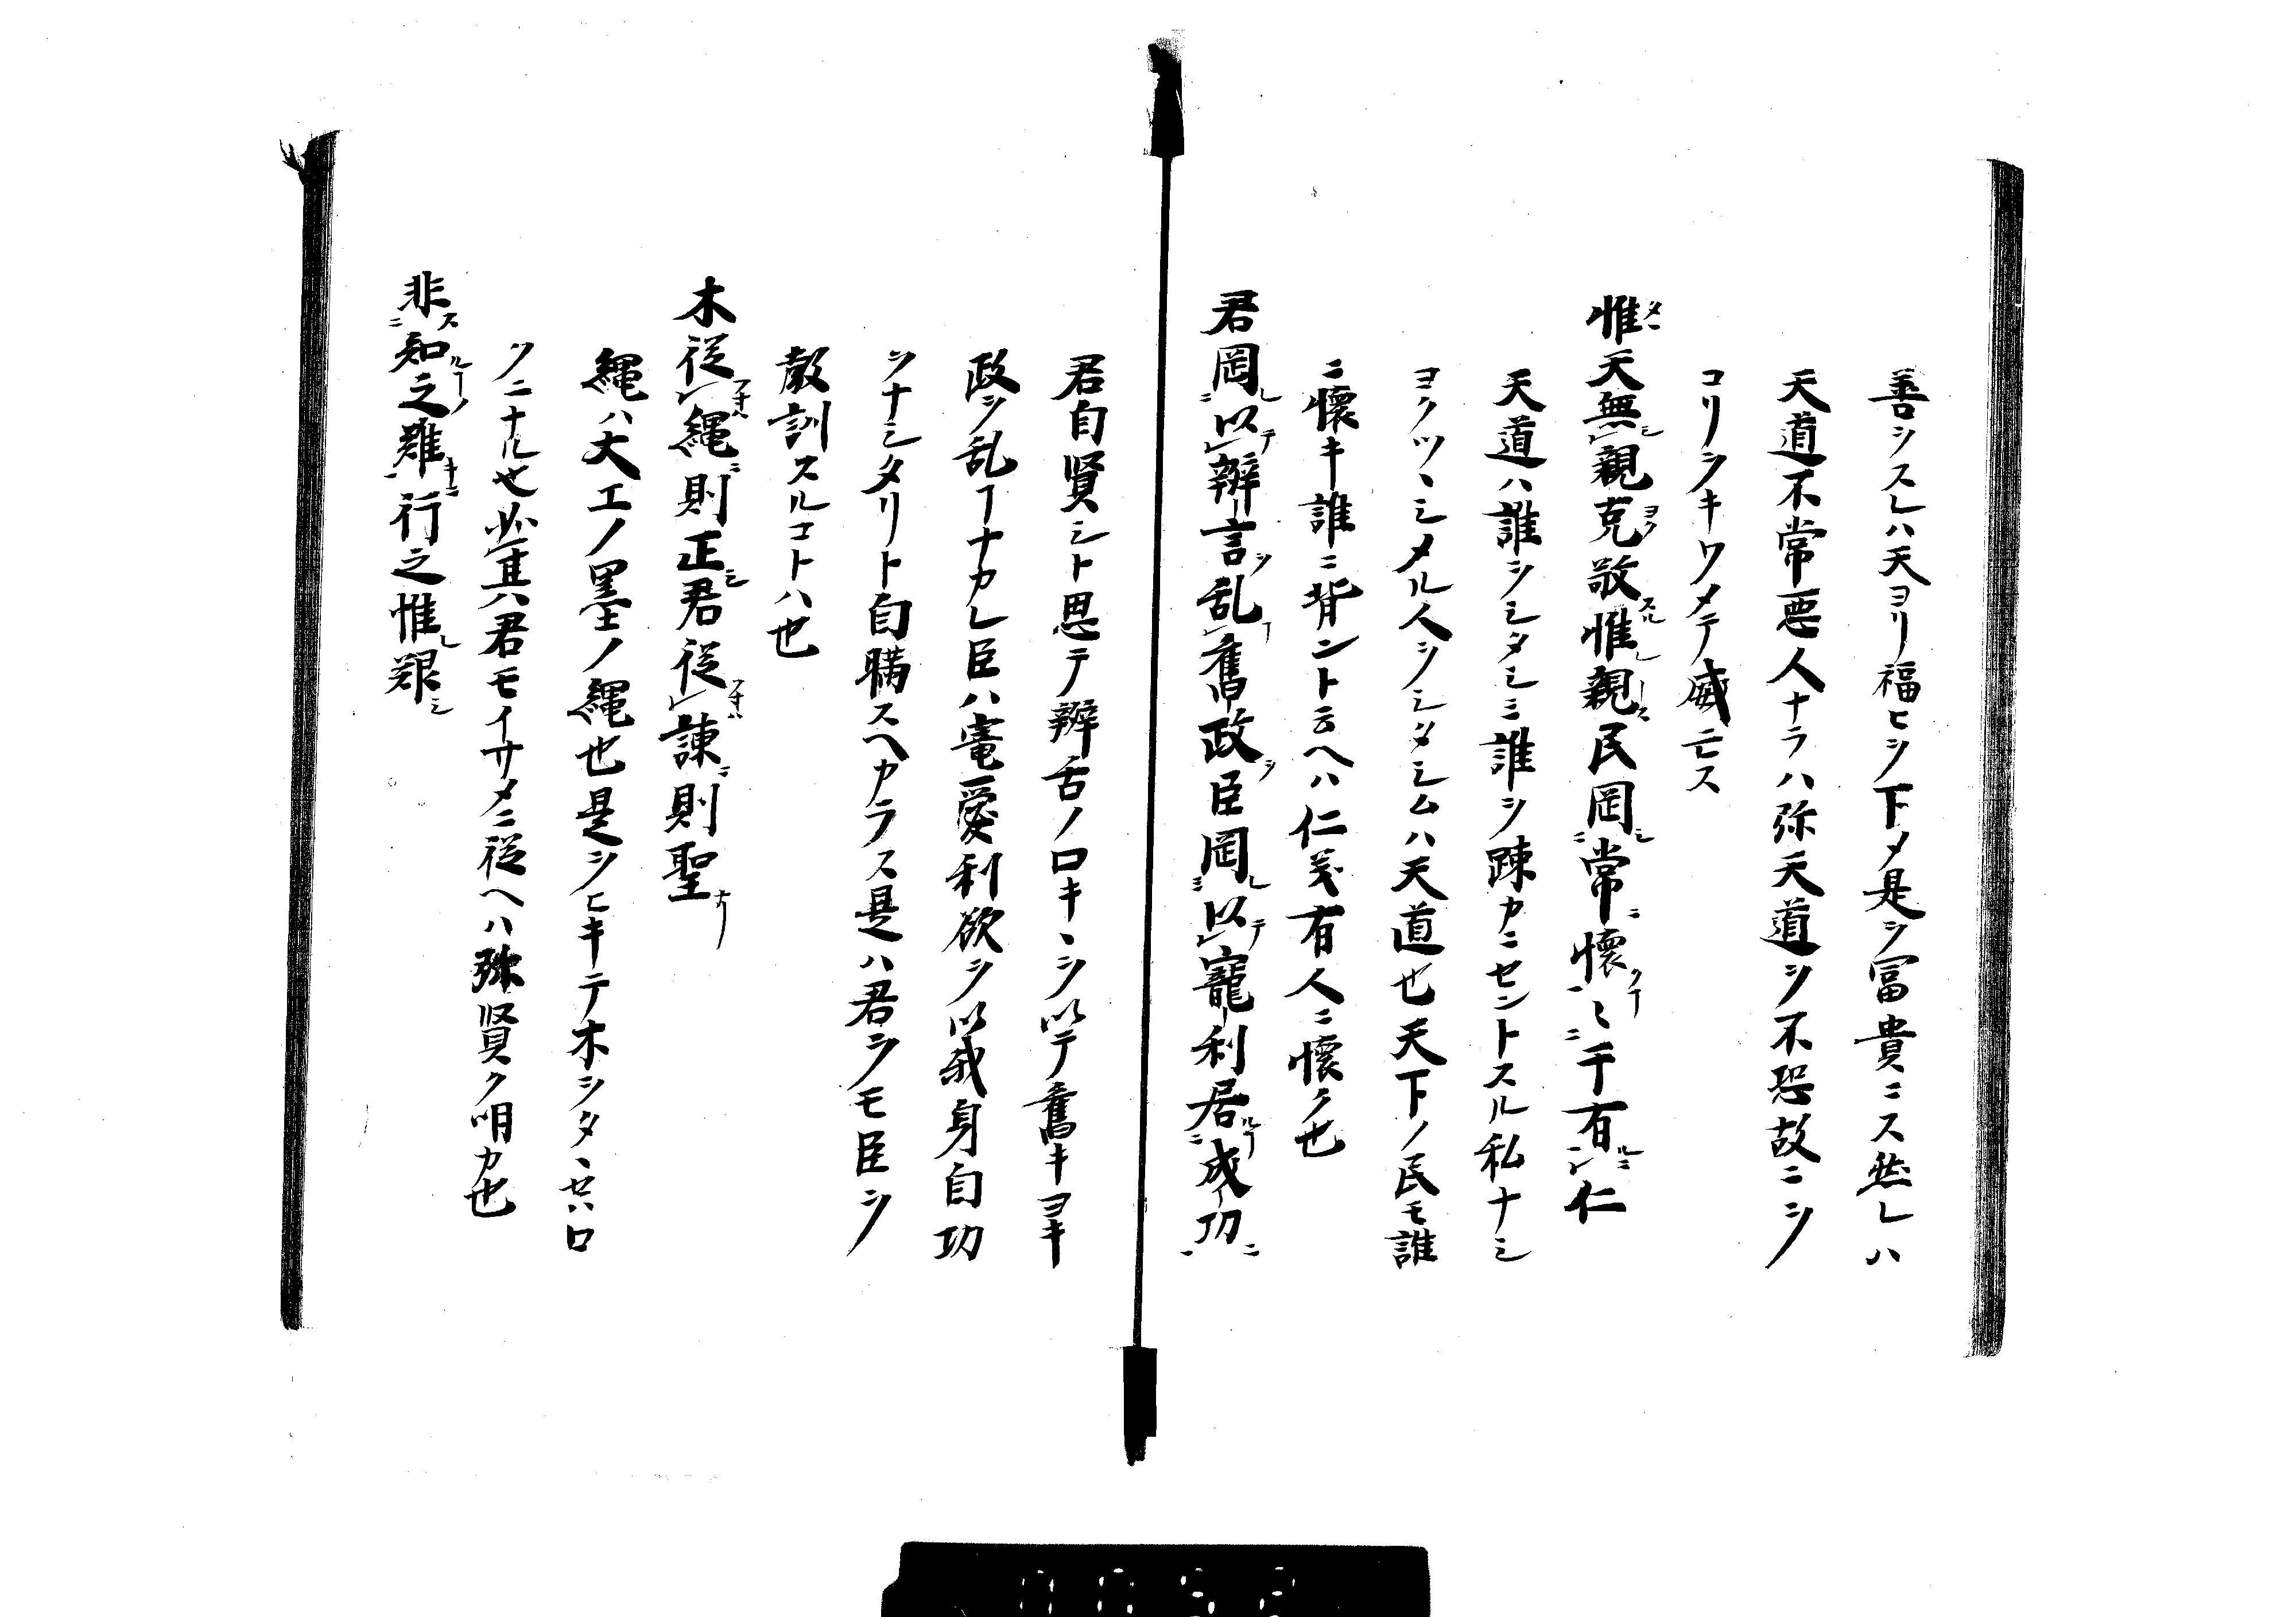 善ヲスレハ天ヨリ福ヒヲ下メ是ヲ冨貴ニス然レハ
天道不常悪人ナラハ弥天道ヲ不恐故ニヲ
コリヲキワメテ威亡ス
惟天無親克敬惟親民罔常懐〻于有仁
天道ハ誰ヲシタシミ誰ヲ踈カニセントスル私ナシ
ヨクツヽシメル人ヲシタシムハ天道也天下ノ民モ誰
ニ懐キ誰ニ背ント云ヘハ仁義有人ニ懐ク也
君罔以辨言乱舊政臣罔以寵利居成功
君自賢シト思テ辨舌ノ口キヽヲ以テ舊キヨキ
政ヲ乱ヿナカレ臣ハ寵愛利欲ヲ以我身自功
ヲナシタリト自驕スヘカラス是ハ君ヲモ臣ヲ
教訓スルコトハ也
木従縄則正君従諌則聖
縄ハ大工ノ墨ノ縄也是ヲヒキテ木ヲタヽセハロ
クニナル也必其八君モイサメニ従ヘハ弥賢ク明カ也
非知之難行之惟艱